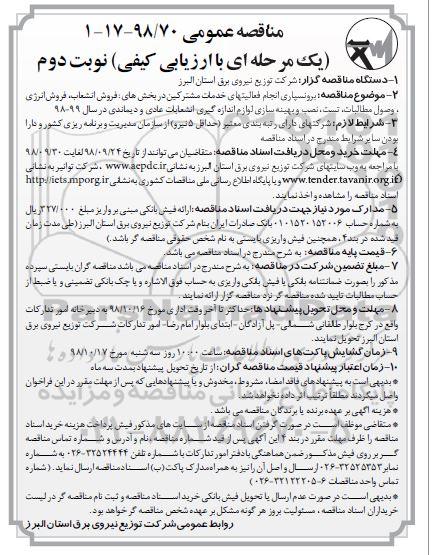 مناقصه عمومی ۹۸/۷۰-۱۷-۱
(یک مرحله ای با ارزیابی کیفی) نوبت دوم
۱-دستگاه مناقصه گزار: شرکت توزیع نیروی برق استان البرز
۲-موضوع مناقصه: برونسپاری انجام فعالیتهای خدمات مشترکین در بخش های: فروش انشعاب، فروش انرژی
، وصول مطالبات، تست، نصب و بهینه سازی لوازم اندازه گیری انشعابات عادی و دیماندی در سال ۹۹-۹۸
۳- شرایط لازم: شرکتهای دارای رتبه بندی معتبر (حداقل ۵ نیرو) از سازمان مدیریت و برنامه ریزی کشور و دارا
بودن سایر شرایط مندرج در اسناد مناقصه
۴- مهلت خرید و محل دریافت اسناد مناقصه: متقاضیان می توانند از تاریخ ۹۸/۰۹/۲۴ لغایت ۹۸/۰۹/۳۰
با مراجعه به وب سایتهای شرکت توزیع نیروی برق استان البرز به نشانی www.aepdc.ir ، شرکت توانیر به نشانی
www.tender.tavanir.org.ir و یا پایگاه اطلاع رسانی ملی مناقصات کشوری به نشانی http://iets.mporg.ir
اسناد مناقصه را مشاهده و اخذ نمایند.
۵- مدارک مورد نیاز جهت دریافت اسناد مناقصه: ارائه فیش بانکی مبنی بر واریز مبلغ ۳۲۷/۰۰۰ ریال
به شماره حساب ۰۱۰۱۵۲۰۱۵۲۰۰۶ بانک صادرات ایران بنام شرکت توزیع نیروی برق استان البرز (طی مدت زمان
قید شده در بند۴ ، همچنین فیش واریزی بایستی به نام شخص حقوقی مناقصه گر باشد.)
۶- قیمت پایه مناقصه: به شرح مندرج در اسناد مناقصه می باشد.
۷- مبلغ تضمین شرکت در مناقصه: به شرح مندرج در اسناد مناقصه می باشد مناقصه گران بایستی سپرده
مذکور را بصورت ضمانتنامه بانکی یا فیش بانکی واریزی به حساب فوق الاشاره و یا چک بانکی تضمینی و یا ضبط از
حساب مطالبات تایید شده مناقصه گر نزد مناقصه گزار ارائه نمایند.
۸- مهلت و محل تحویل پیشنهاد ها: حداکثر تا آخر وقت اداری مورخ ۹۸/۱۰/۱۶ به دبیرخانه امور تدارکات
واقع در کرج بلوار طالقانی شمالی- پل آزادگان - ابتدای بلوار امام رضا- امور تدارکات شرکت توزیع نیروی برق
استان البرز تحویل نمایند.
۹- زمان گشایش پاکت های اسناد مناقصه: ساعت ۱۰:۰۰ روز سه شنبه مورخ ۹۸/۱۰/۱۷
۱۰- زمان اعتبار پیشنهاد قیمت مناقصه گران: از تاریخ تحویل پیشنهاد بمدت سه ماه
* بدیهی است به پیشنهادهای فاقد امضا، مشروط ، مخدوش و یا پیشنهادهایی که پس از مهلت مقرر در این فراخوان
واصل میگردند مطلقا ترتیب اثر داده نخواهد شد.
* هزینه آگهی بر عهده برنده یا برندگان مناقصه می باشد.
* متقاضی موظف است در صورت گرفتن اسناد مناقصه از سایت های مذکور فیش پرداخت هزینه خرید اسناد
مناقصه را ظرف مهلت مقرر در بند ۴ این آگهی پس از قید شماره مناقصه ، نام و آدرس و شماره تماس مناقصه
گر بر روی فیش مذکور ضمن هماهنگی با دفتر امور تدارکات با شماره تلفن ۳۲۵۲۴۴۴۴-۰۲۶ به شماره
نمابر ۳۲۵۲۵۳۵۳-۰۲۶ ارسال و اصل آن را نیز به همراه مدارک پاکت (ب) اسناد مناقصه ارسال نماید. (شماره
تماس واحد مناقصات ۶-۳۲۱۲۲۲۰۵-۰۲۶)
* بدیهی است در صورت عدم ارسال یا تحویل فیش بانکی خرید اسناد مناقصه و ثبت نام مناقصه گر در لیست
خریداران اسناد مناقصه ، مسئولیت بروز هر گونه مشکل بر عهده شخص مناقصه گر خواهد بود.
روابط عمومی شرکت توزیع نیروی برق استان البرز